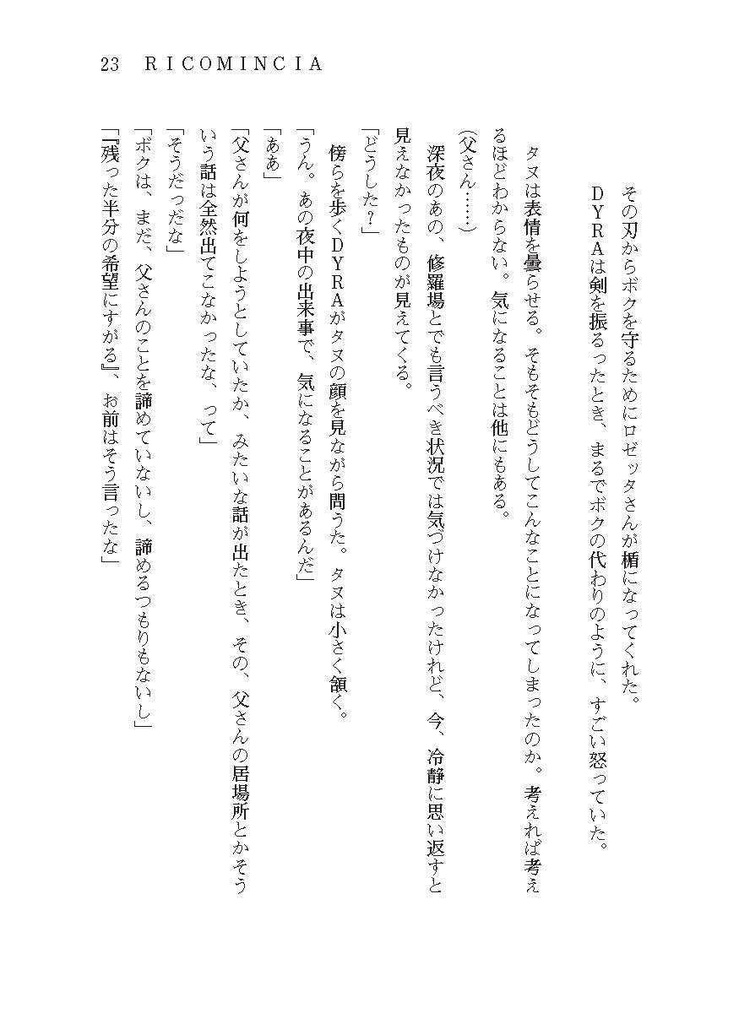 23 RICOMINCIA
その刃からボクを守るためにロゼッタさんが楯になってくれた。
DYRAは剣を振るったとき、まるでボクの代わりのように、すごい怒っていた。
タヌは表情を曇らせる。そもそもどうしてこんなことになってしまったのか。考えれば考え
るほどわからない。気になることは他にもある。
(父さん……)
深夜のあの、修羅場とでも言うべき状況では気づけなかったけれど、今、冷静に思い返すと
見えなかったものが見えてくる。
「どうした?」
傍らを歩くDYRAがタヌの顔を見ながら問うた。タヌは小さく頷く。
「うん。あの夜中の出来事で、気になることがあるんだ」
「ああ」
「父さんが何をしようとしていたか、みたいな話が出たとき、その、父さんの居場所とかそう
いう話は全然出てこなかったな、って」
「そうだっだな」
「ボクは、まだ、父さんのことを諦めていないし、諦めるつもりもないし」
「『残った半分の希望にすがる』、お前はそう言ったな」